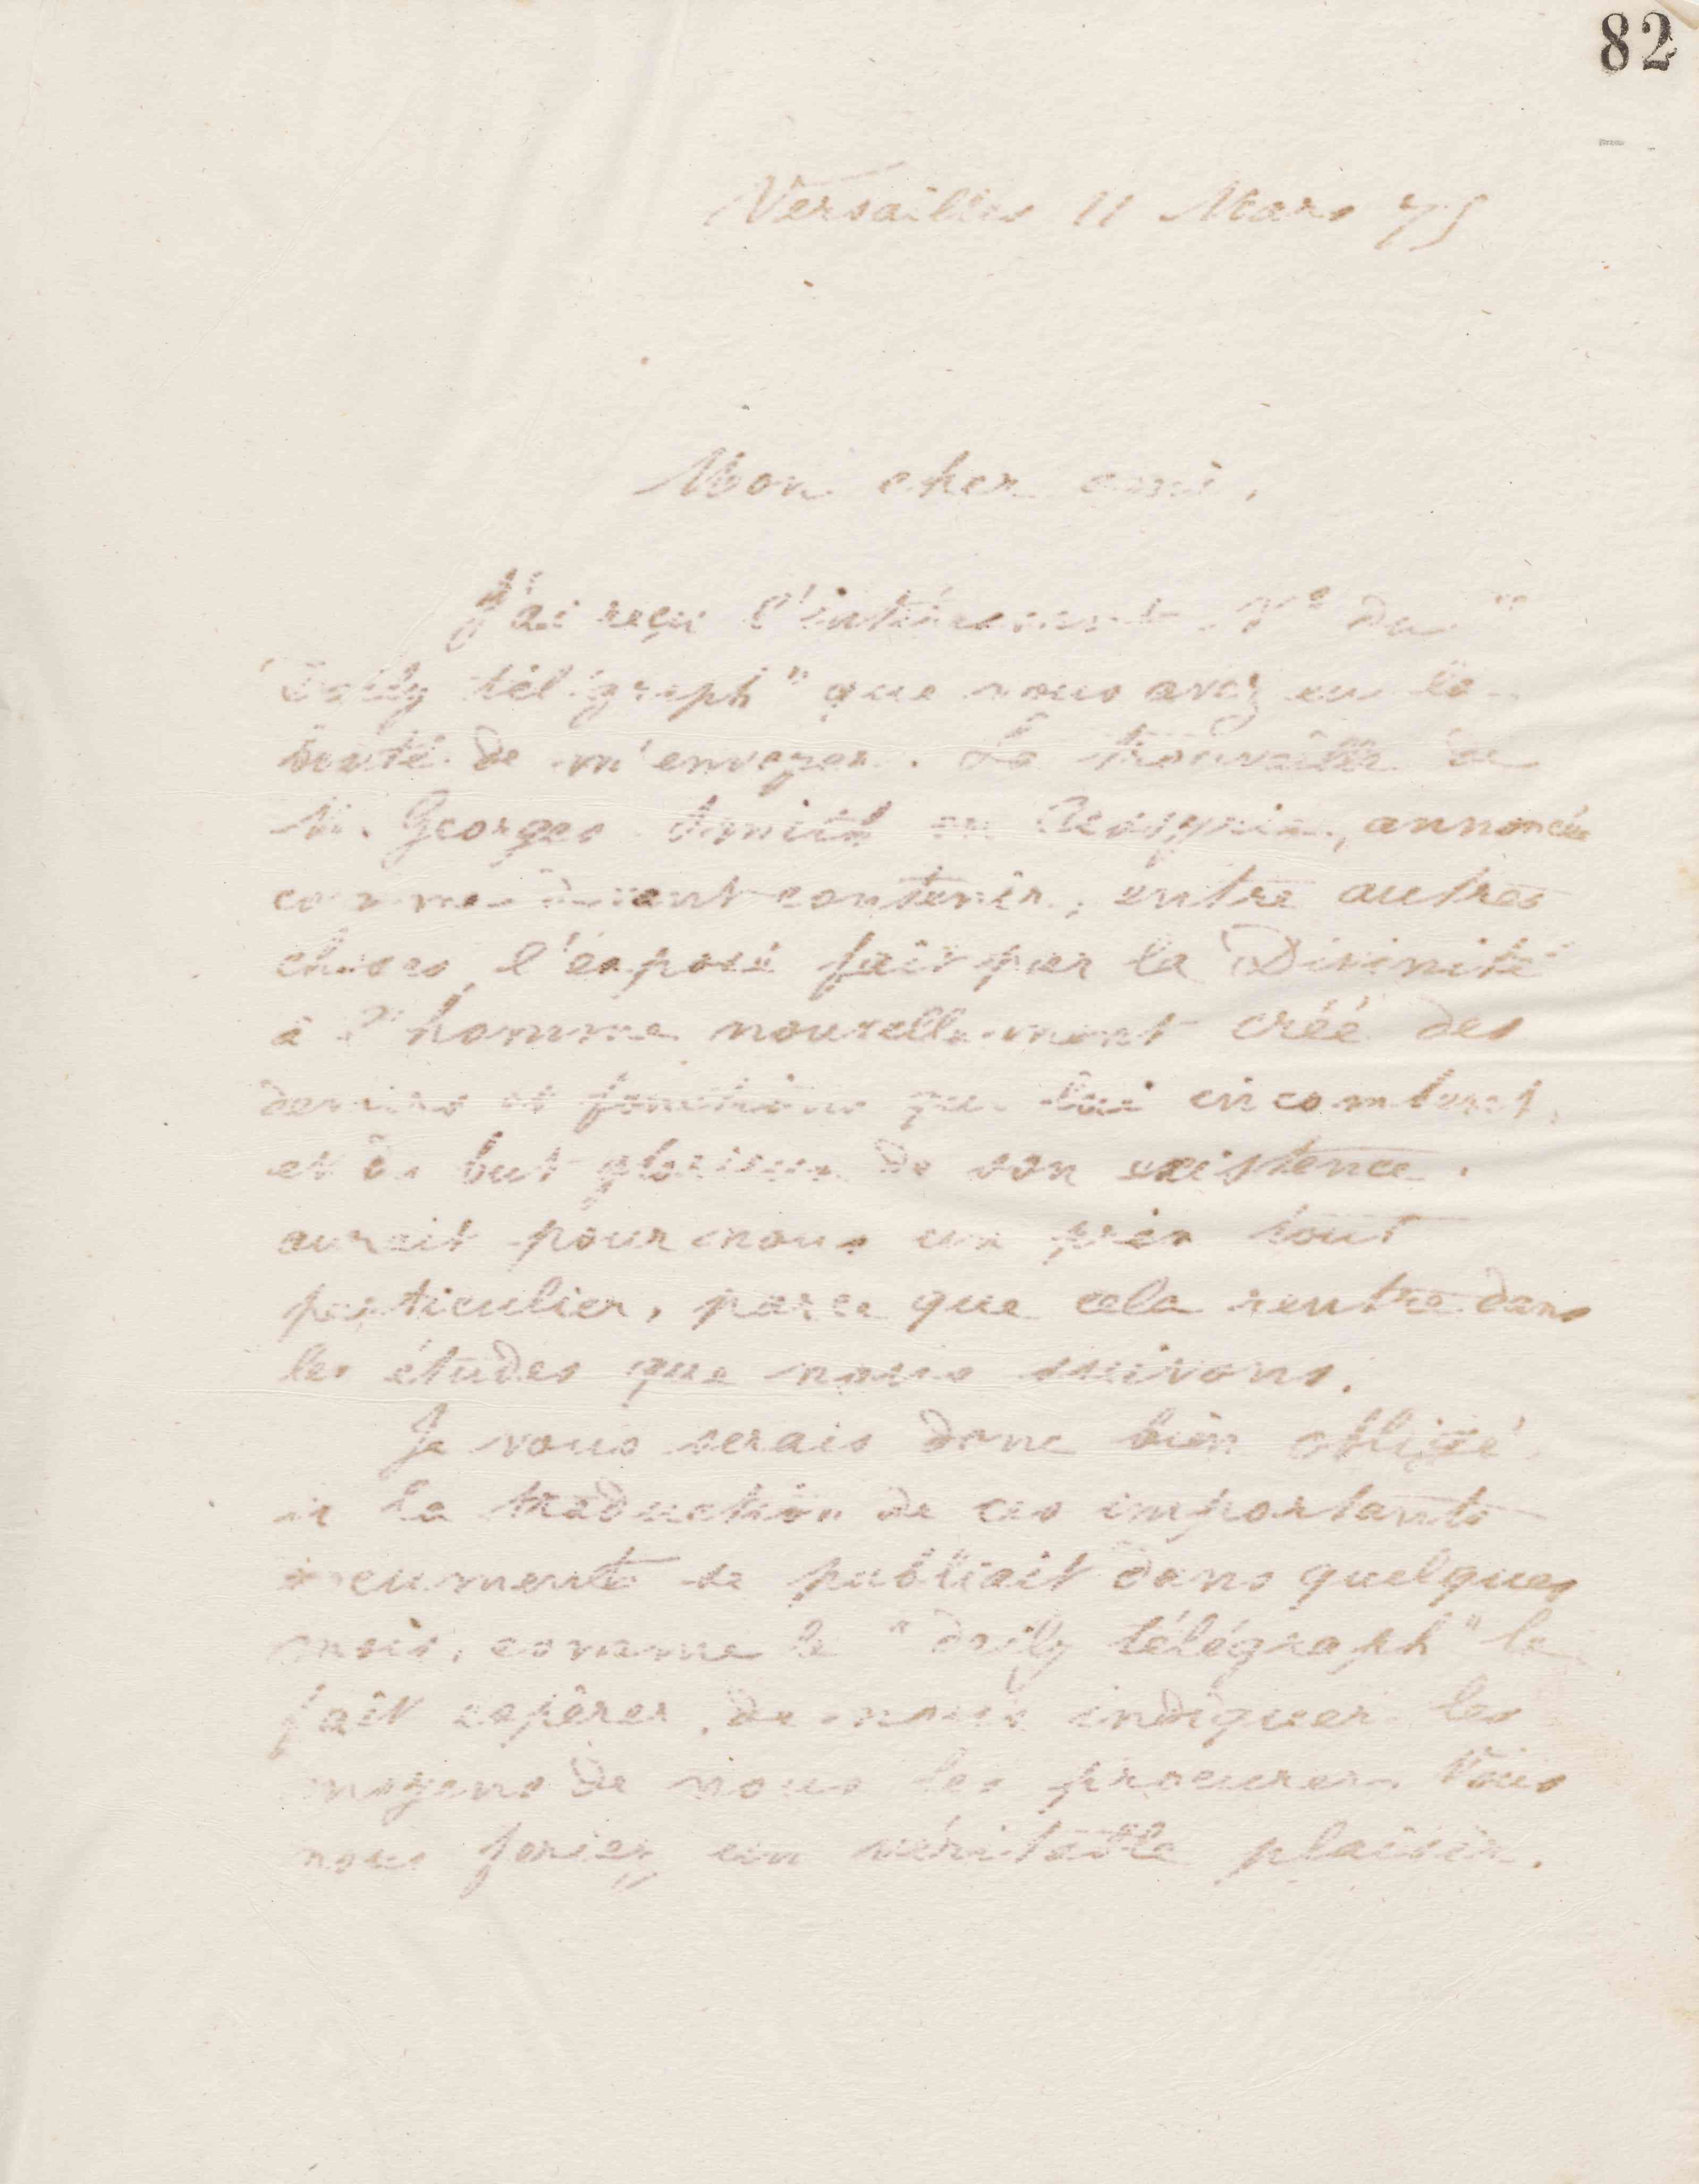 82
Versailles 11 Mars 75
Mon cher ami,
J'ai reçu l'intéressant No du
"Daily télégraph" que vous avez eu la
bonté de m'envoyer. La trouvaille de
M. Georges Smith en Assyrie, annoncée
comme devant contenir, entre autres
choses, l'exposé fait par la Divinité
à l'homme nouvellement créé des
devoirs et fonctions qui lui incombent,
et du but glorieux de son existence.
aurait pour nous un prix tout
particulier, parce que cela rentre dans
les études que nous suivons.
Je vous serais donc bien obligé,
si la traduction de ces importants
documents se publiait dans quelques
mois, comme le "daily télégraph" le
fait espérer, de nous indiquer les
moyens de nous les procurer. Vous
nous feriez un véritable plaisir.